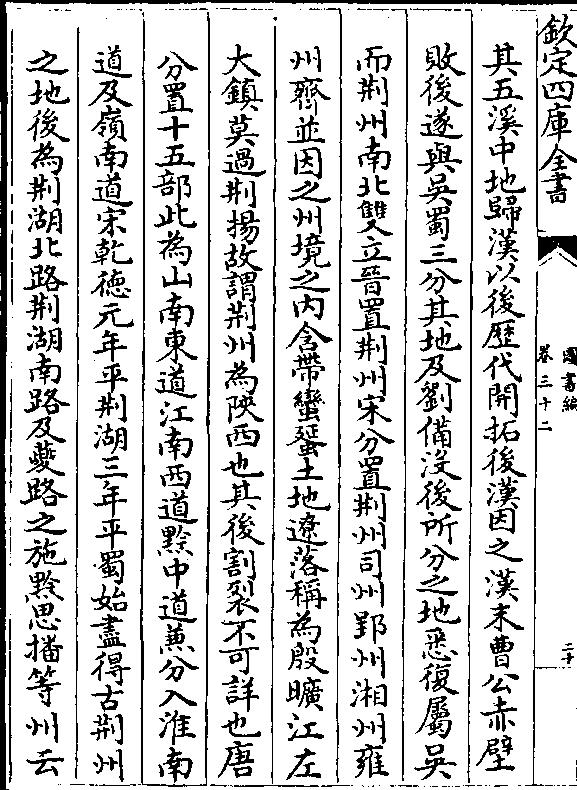 欽定四庫全書
圖書編
卷三十二
二十
其五溪中地歸漢以後歷代開拓後漢因之漢末曹公赤壁
敗後遂與吳蜀三分其地及劉備沒後所分之地悉復屬吳
而荆州南北雙立晉置荆州宋分置荆州司州郢州湘州雍
州齊並因之州境之内含帶蠻蜑土地遼落稱為殷曠江左
大鎮莫過荆揚故謂荆州為陜西也其後割裂不可詳也唐
分置十五部此為山南東道江南西道黔中道兼分入淮南
道及嶺南道宋乾德元年平荆湖三年平蜀始盡得古荆州
之地後為荆湖北路荆湖南路及夔路之施黔思播等州云